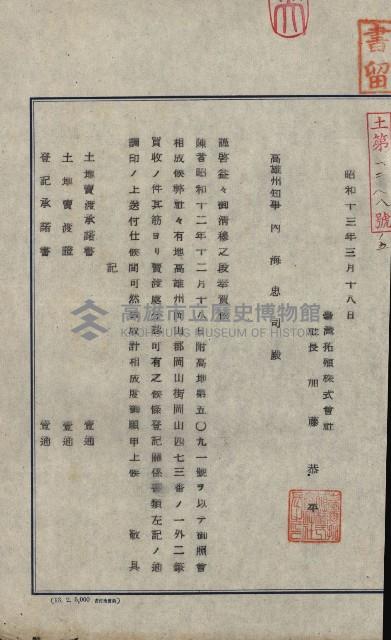 書留
土第一二八八號ノ五
昭和十三年三月十八日
臺灣拓殖株式會社
社長 加藤恭平
高雄州知事 內海忠司殿
謹啓益々御淸穆之段奉賀候
陳者昭和十二年十二月十八日附高地第五〇九一號ヲ以テ御照會
相成候弊社々有地高雄州岡山郡岡山街岡山四七三番ノ一外二筆
買收ノ件其筋ヨリ賣渡處分認可有之候條登記關係書類左記ノ通
調印ノ上送付仕候間可然御取計相成度御願申上候 敬具
記
土地賣渡承諾書 壹通
土地賣渡證 壹通
登記承諾書 壹通
高雄市立歷史博物館
KAOHSIUNG MUSEUM OF HISTORY
(13. 2. 5,000